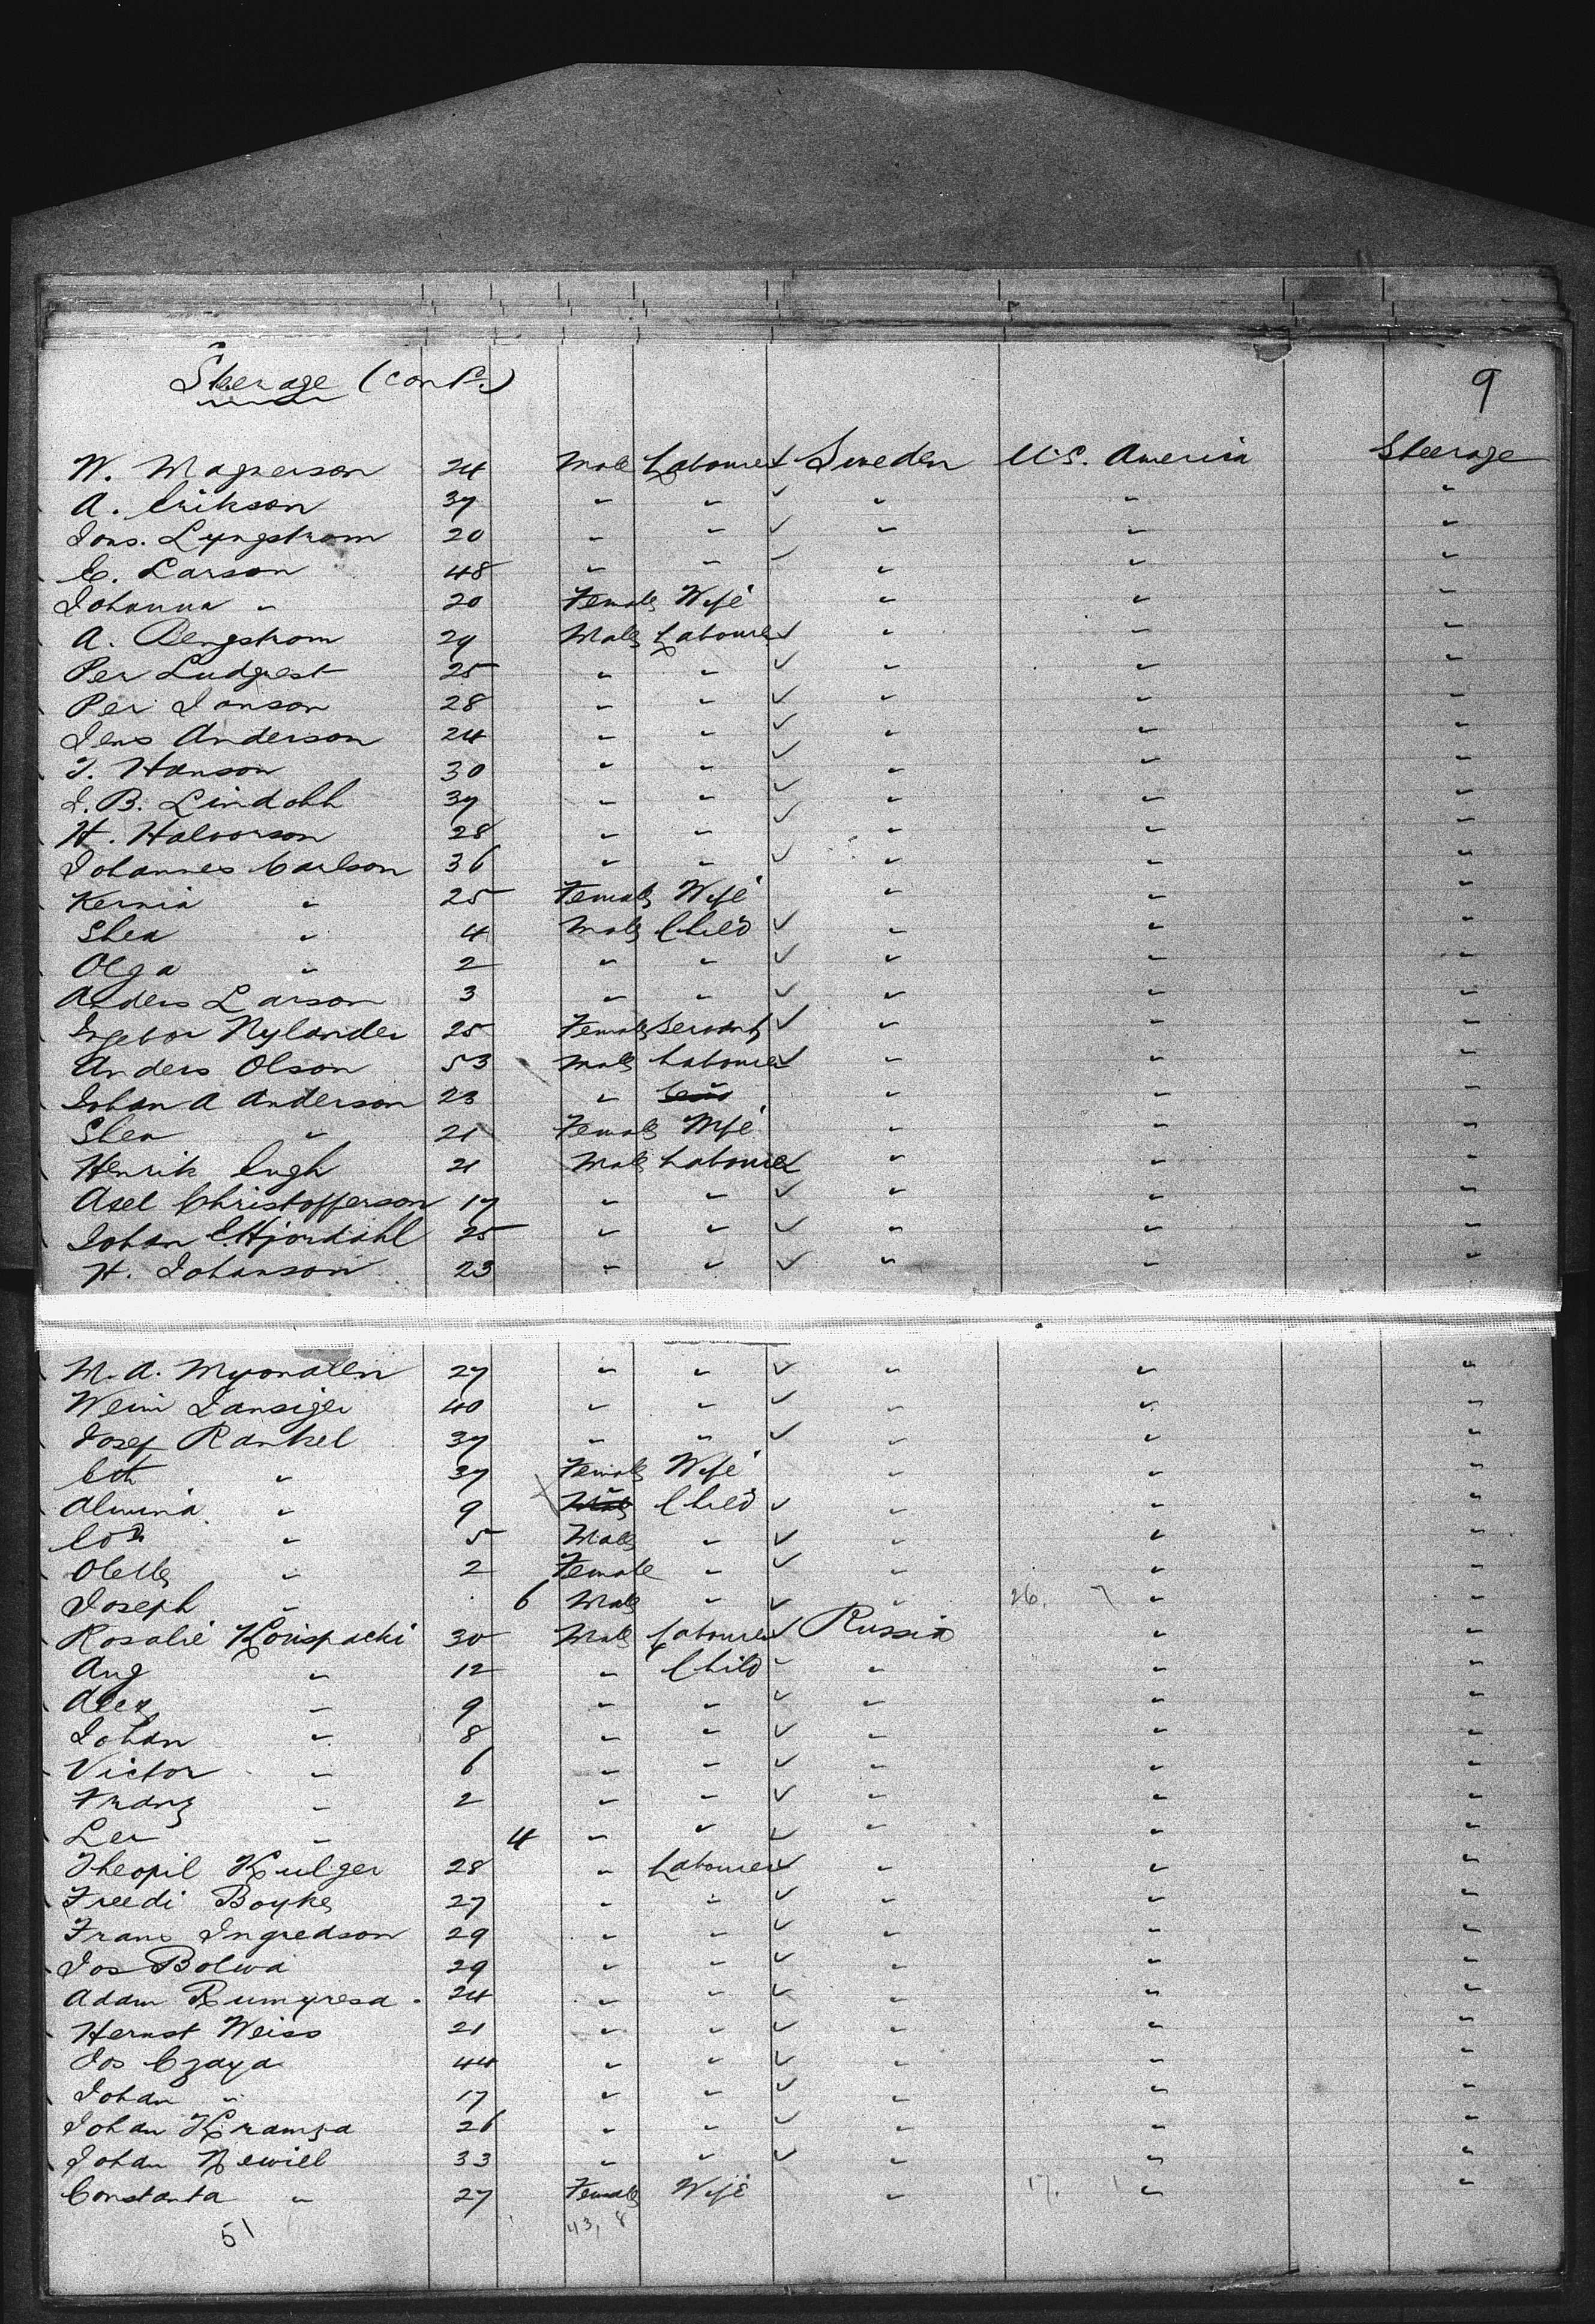 Steerage (cont.) 9
W. Magnerson 24 Male Labourer ✓ Sweden U.S. America Steerage
A. Erikson 37 " " ✓ " " "
Jons. Lyngstrom 20 " " ✓ " " "
C. Larson 48 " " ✓ " " "
Johanna " 20 Female Wife " " "
A. Bengstrom 29 Male Labourer ✓ " " "
Per Ludgrest 25 " " ✓ " " "
Per Jonson 28 " " ✓ " " "
Jens Anderson 24 " " ✓ " " "
T. Hanson 30 " " ✓ " " "
J. B. Lindahl 37 " " ✓ " " "
H. Halvorson 28 " " ✓ " " "
Johannes Carlson 36 " " ✓ " " "
Kernia " 25 Female Wife " " "
Shea " 4 Male Child ✓ " " "
Olga " 2 " " ✓ " " "
Anders Larson 3 " " ✓ " " "
Ingebor Nylander 25 Female Servant ✓ " " "
Anders Olson 53 Male Labourer ✓ " " "
Johan A Anderson 23 " " " "
Shea " 21 Female Wife " " "
Henrik Engh 21 Male Labourer ✓ " " "
Axel Christofferson 17 " " ✓ " " "
Johan E. Hjordahl 25 " " ✓ " " "
H. Johanson 23 " " ✓ " " "
M. A. Myonaten 27 " " ✓ " " "
Weini Jansiger 40 " " ✓ " " "
Josef Rankel 37 " " ✓ " " "
" 37 Female Wife " " "
Almina " 9 Child ✓ " " "
" 5 Male " ✓ " " "
" 2 Female " ✓ " " "
Joseph " 6 Male " ✓ " 26. " "
Rosalie 30 Male Labourer ✓ Russia " "
Aug " 12 " Child ✓ " " "
Alex " 9 " " ✓ " " "
Johan " 8 " " ✓ " " "
Victor " 6 " " ✓ " " "
Franz " 2 " " ✓ " " "
Leo " 4 " " ✓ " " "
Theopil Kulger 28 " Labourer ✓ " " "
Freedi Boyke 27 " " ✓ " " "
Frans Ingredson 29 " " ✓ " " "
Jos Bolwa 29 " " ✓ " " "
Adam Rumyresa 24 " " ✓ " " "
Hernst Weiss 21 " " ✓ " " "
Jos Czaya 44 " " ✓ " " "
Johan " 17 " " ✓ " " "
Johan Kramza 26 " " ✓ " " "
Johan Newill 33 " " ✓ " " "
Constanta " 27 Female Wife " 17. " "
51 43, 8